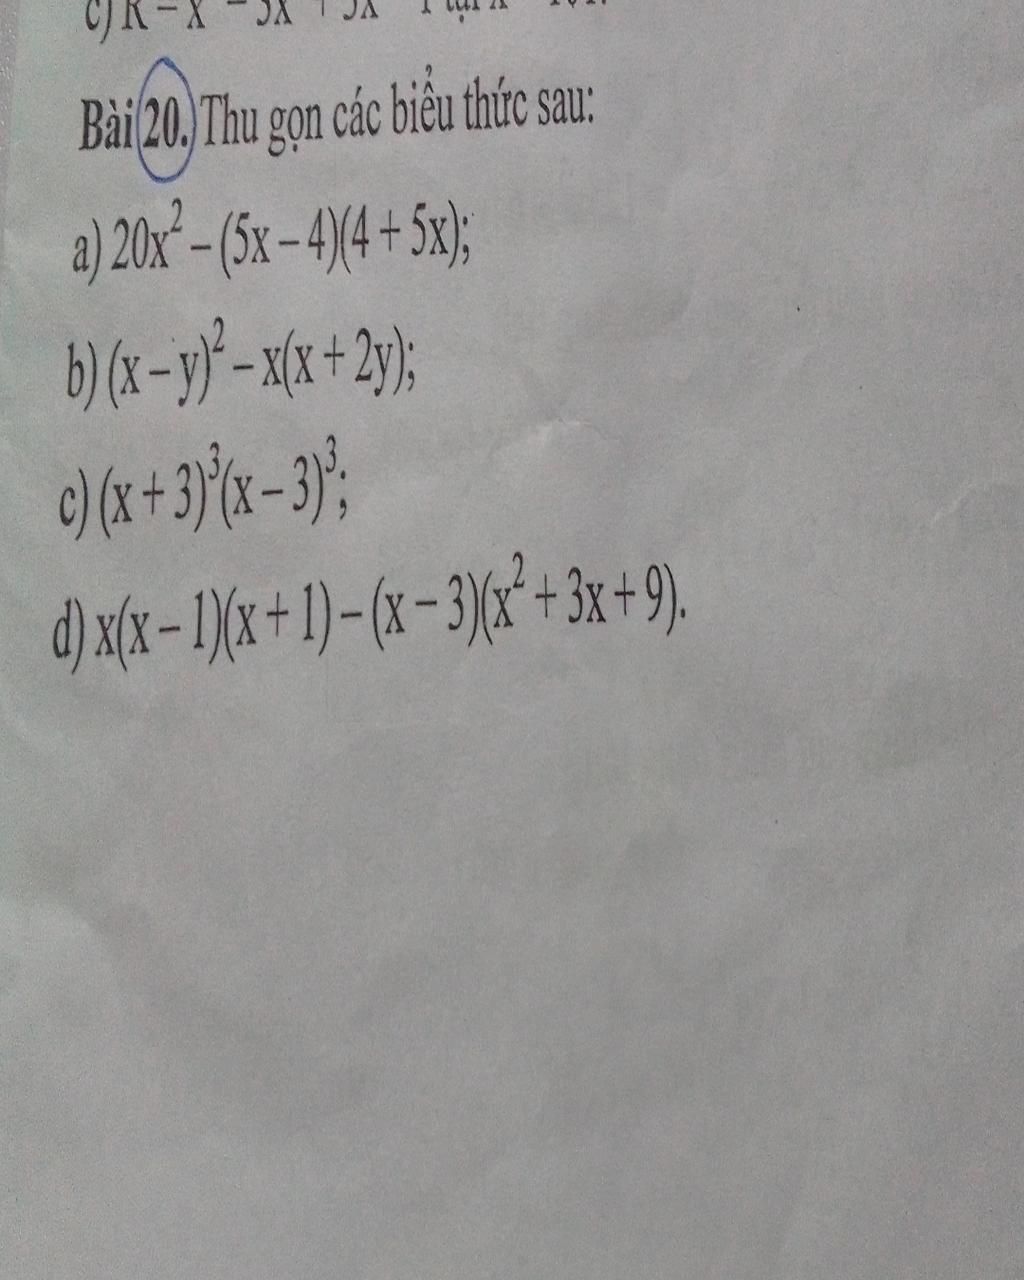 Bài 20. Thu gọn các biểu thức sau:
a) 20x² – (5x – 4)(4 + 5x);
b) (x – y)² – x(x + 2y);
c) (x + 3)³(x – 3)³;
d) x(x – 1)(x + 1) – (x – 3)(x² + 3x + 9).